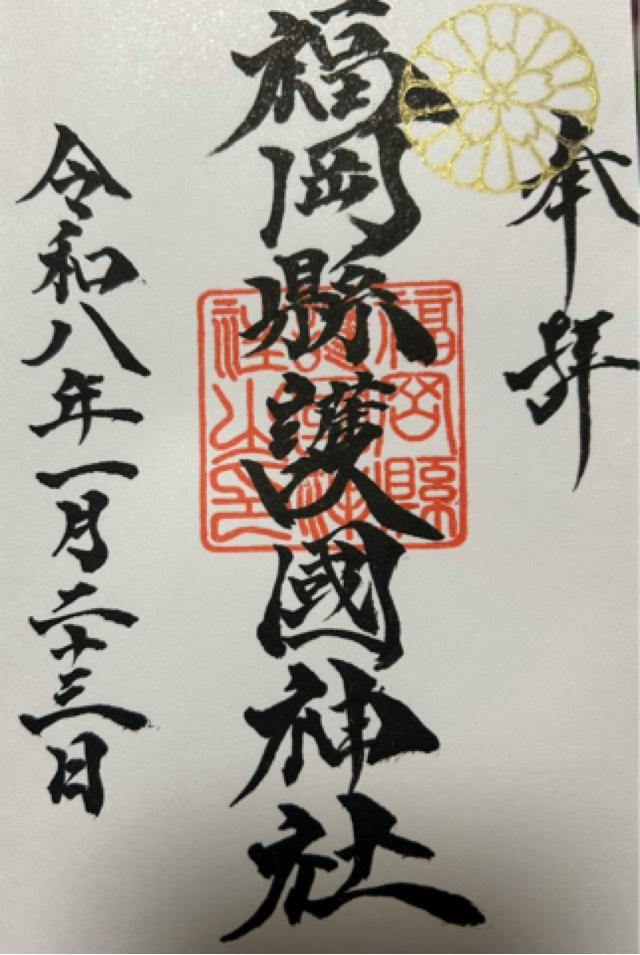 奉拝
福岡縣護國神社
福岡縣護國神社之印
令和八年一月二十三日